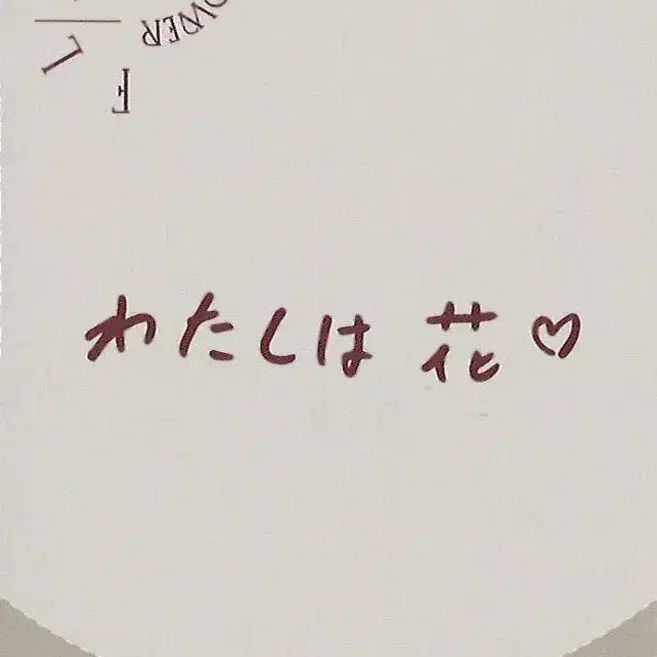 FL
OWER
わたしは 花♡